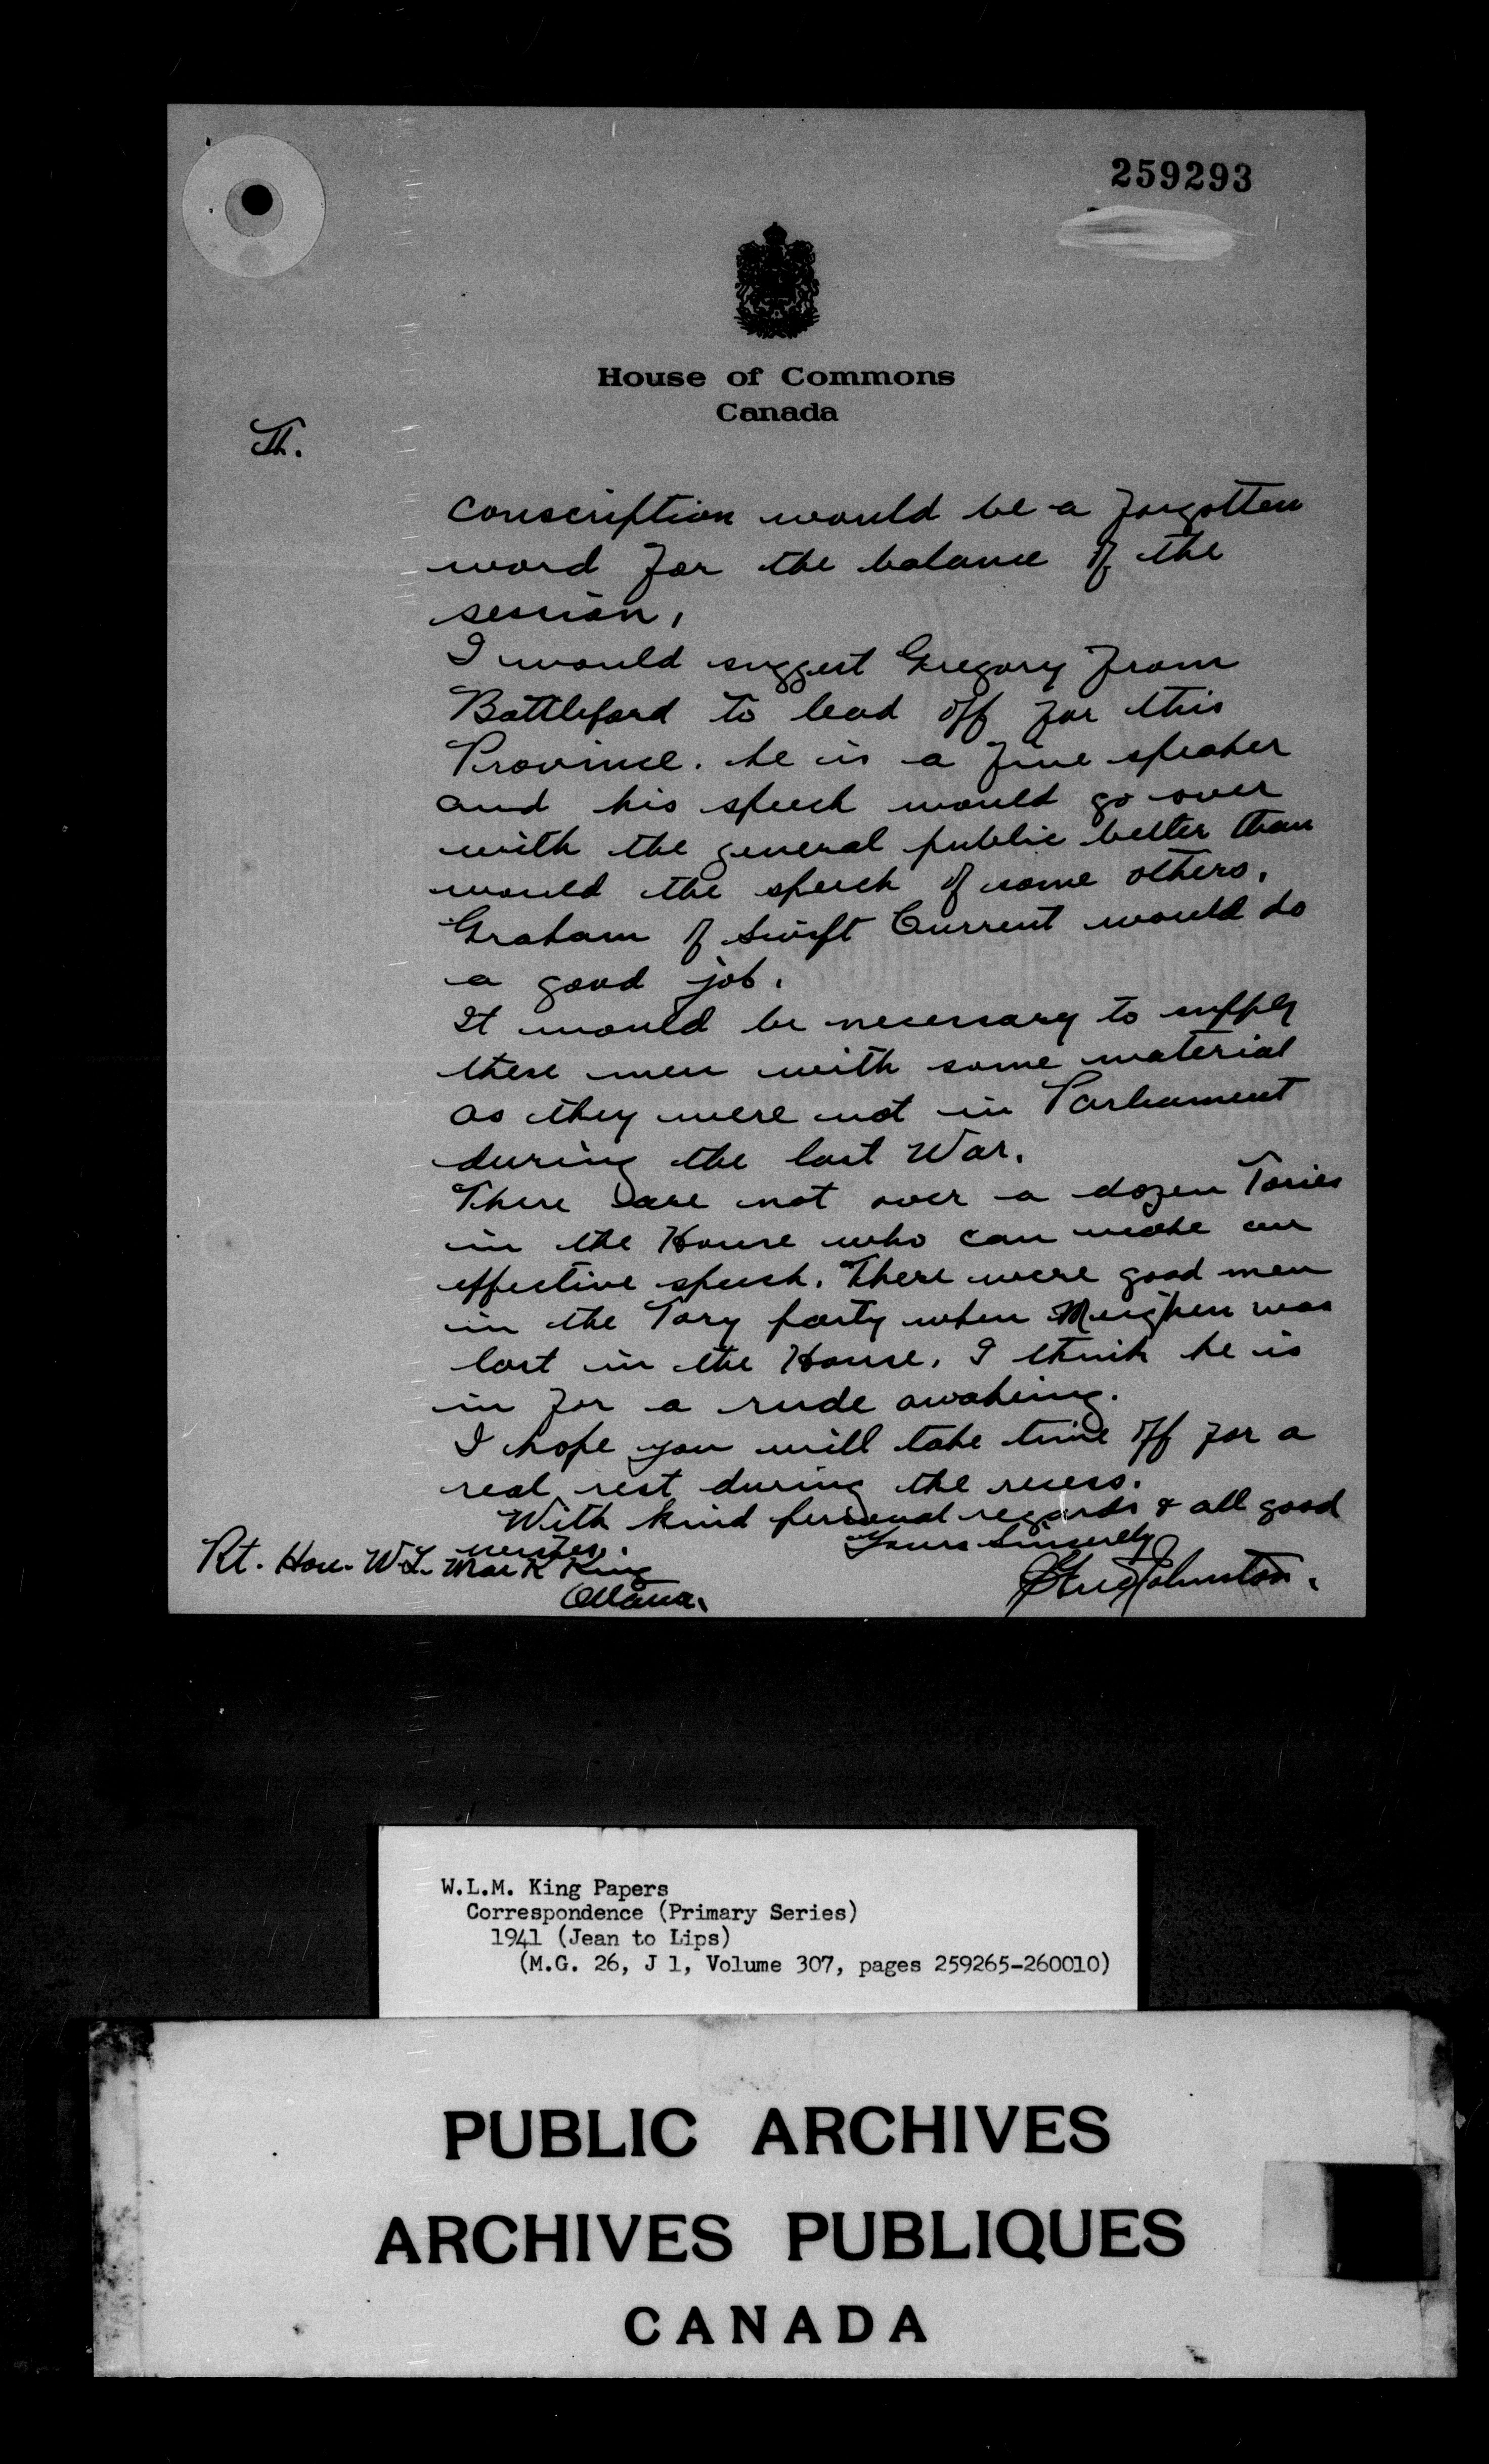 259293
House of Commons
Canada
conscription would be a forgotten
word for the balance of the
session.
I would suggest Gregory from
Battleford to lead off for this
Province. he is a fine speaker
and his speech would go over
with the general public better than
would the speech of some others.
Graham of Swift Current would do
a good job.
It would be necessary to supply
these men with some material
as they were not in Parliament
during the last War.
There are not over a dozen Tories
in the House who can make an
effective speech. There were good men
in the Tory party when Meighen was
last in the House. I think he is
in for a rude awakeing.
I hope you will take time off for a
real rest during the recess.
With kind personal regards & all good
wishes.
Yours Sincerely
Johnston.
Rt. Hon. W.L. MacK King
Ottawa.
W.L.M. King Papers
Correspondence (Primary Series)
1941 (Jean to Lips)
(M.G. 26, J 1, Volume 307, pages 259265-260010)
PUBLIC ARCHIVES
ARCHIVES PUBLIQUES
CANADA